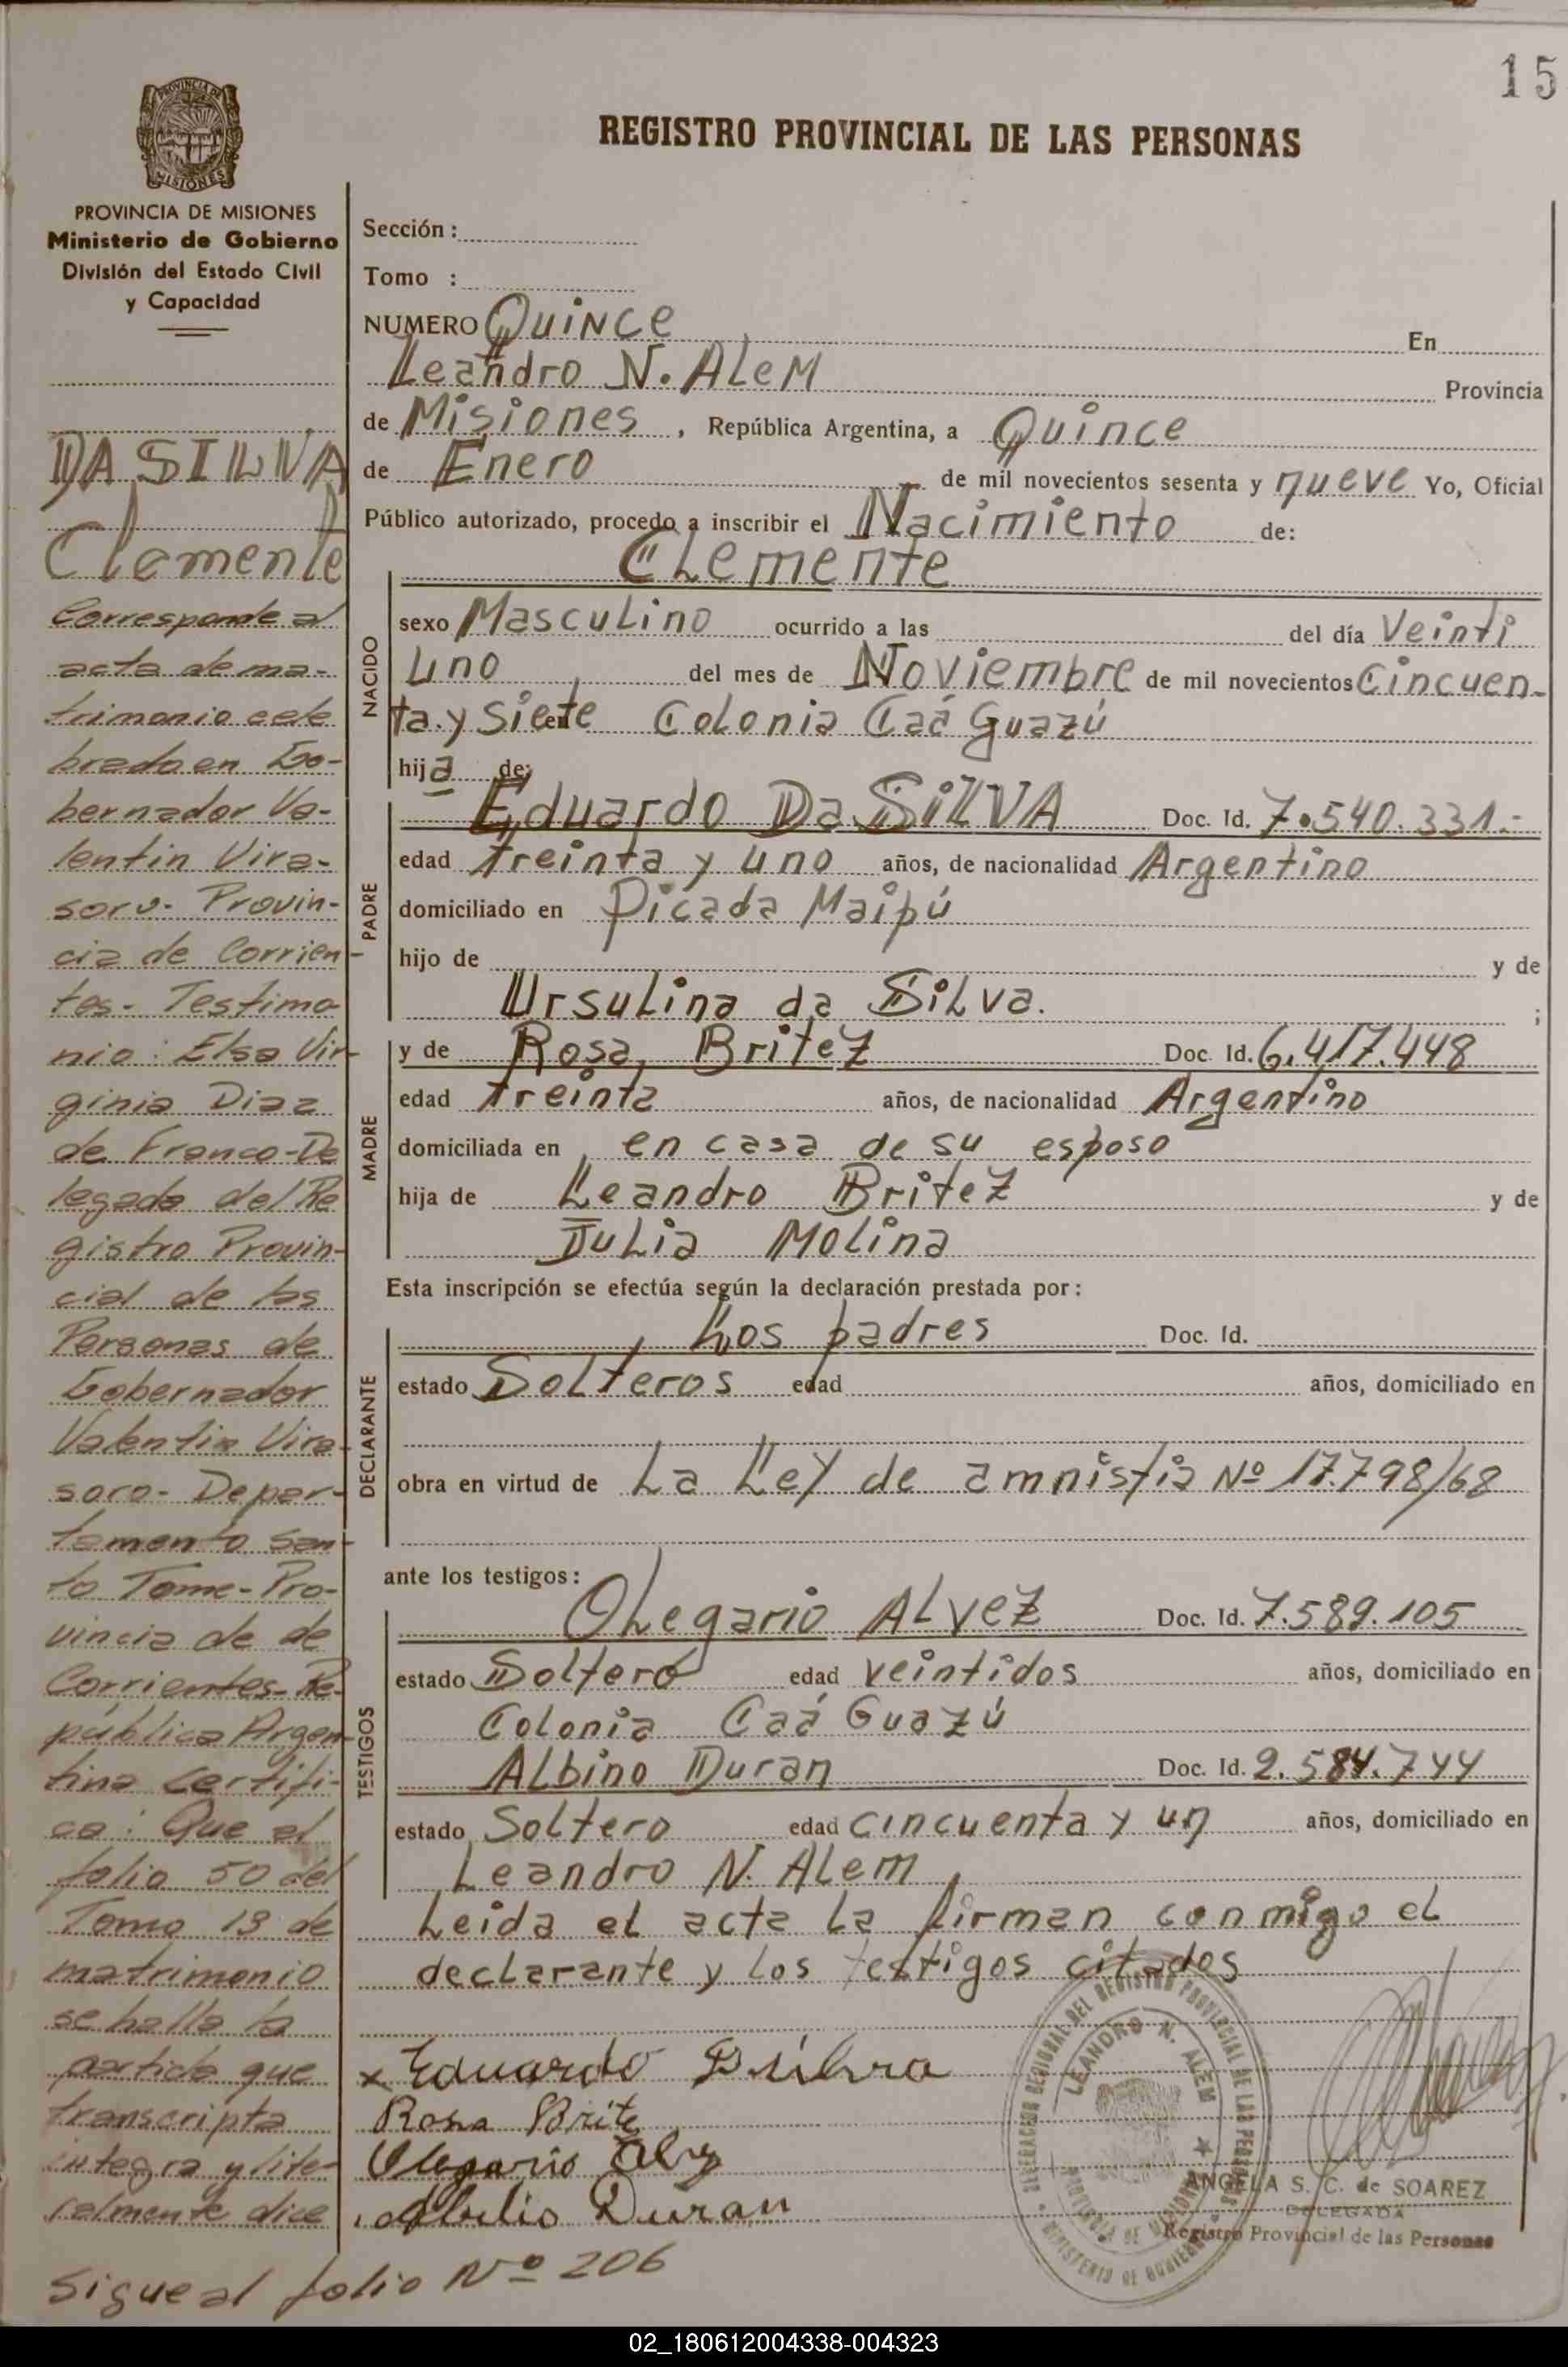 15
REGISTRO PROVINCIAL DE LAS PERSONAS
PROVINCIA DE
MISIONES
PROVINCIA DE MISIONES
Ministerio de Gobierno
División del Estado Civil
y Capacidad
DA SILVA
Clemente
Corresponde al
acta de ma-
trimonio cele
brado en Go-
bernador Va-
lentin Vira-
soro. Provin-
cia de Corrien-
tes. Testimo
nio: Elsa Vir
ginia Diaz
de Franco-De
legada del Re
gistro Provin-
cial de las
Personas de
Gobernador
Valentin Vira
soro- Depar-
tamento San
to Tome-Pro-
vincia de de
Corrientes-Re-
pública Argen
tina Certifi-
ca: Que al
folio 50 del
Tomo 13 de
matrimonio
se halla la
partida que
transcripta
integra y lite-
ralmente dice
Sigue al folio Nº 206
Sección :
Tomo :
NUMERO Quince En
Leandro N. ALeM Provincia
de Misiones, República Argentina, a Quince
de Enero de mil novecientos sesenta y nueve Yo, Oficial
Público autorizado, procedo a inscribir el Nacimiento de:
NACIDO
CLemente
sexo Masculino ocurrido a las del día Veinti
uno del mes de Noviembre de mil novecientos Cincuen-
ta y Siete en Colonia Caá Guazú
hija de:
PADRE
Eduardo Da SILVA Doc. Id. 7.540.331.-
edad treinta y uno años, de nacionalidad Argentino
domiciliado en Picada Maipú
hijo de y de
Ursulina da SiLva. ;
MADRE
y de Rosa BriteZ Doc. Id. 6.417.448
edad treinta años, de nacionalidad Argentino
domiciliada en en casa de su esposo
hija de Leandro BriteZ y de
JuLia Molina
Esta inscripción se efectúa según la declaración prestada por:
DECLARANTE
Los padres Doc. Id.
estado Solteros edad años, domiciliado en
obra en virtud de La Ley de amnistia Nº 17.798/68
ante los testigos:
TESTIGOS
OLegario ALveZ Doc. Id. 7.589.105
estado Soltero edad veintidos años, domiciliado en
Colonia Caá Guazú
ALbino Duran Doc. Id. 2.584.744
estado Soltero edad cincuenta y un años, domiciliado en
Leandro N. ALem
Leida el acta La firman conmigo eL
declarante y los testigos citados
x Eduardo
Rosa Brite
Olegario
Duran
DELEGACION REGIONAL DEL REGISTRO PROVINCIAL DE LAS PERSONAS
LEANDRO N. ALEM
PROVINCIA DE MISIONES
MINISTERIO DE GOBIERNO
ANGELA S. C. de SOAREZ
DELEGADA
Registro Provincial de las Personas
02_180612004338-004323